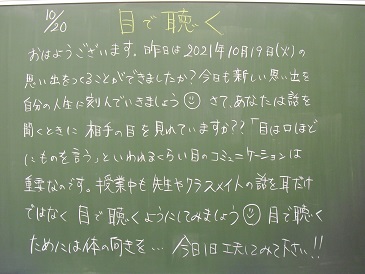 10/20 目で聴く
おはようございます。昨日は2021年10月19日(火)の
思い出をつくることができましたか?今日も新しい思い出を
自分の人生に刻んでいきましょう さて、あなたは話を
聞くときに 相手の目を見れていますか??「目は口ほど
にものを言う」といわれるくらい目のコミュニケーションは
重要なのです。授業中も先生やクラスメイトの話を耳だけ
ではなく目で聴くようにしてみましょう 目で聴く
ためには体の向きを… 今日1日工夫してみて下さい!!